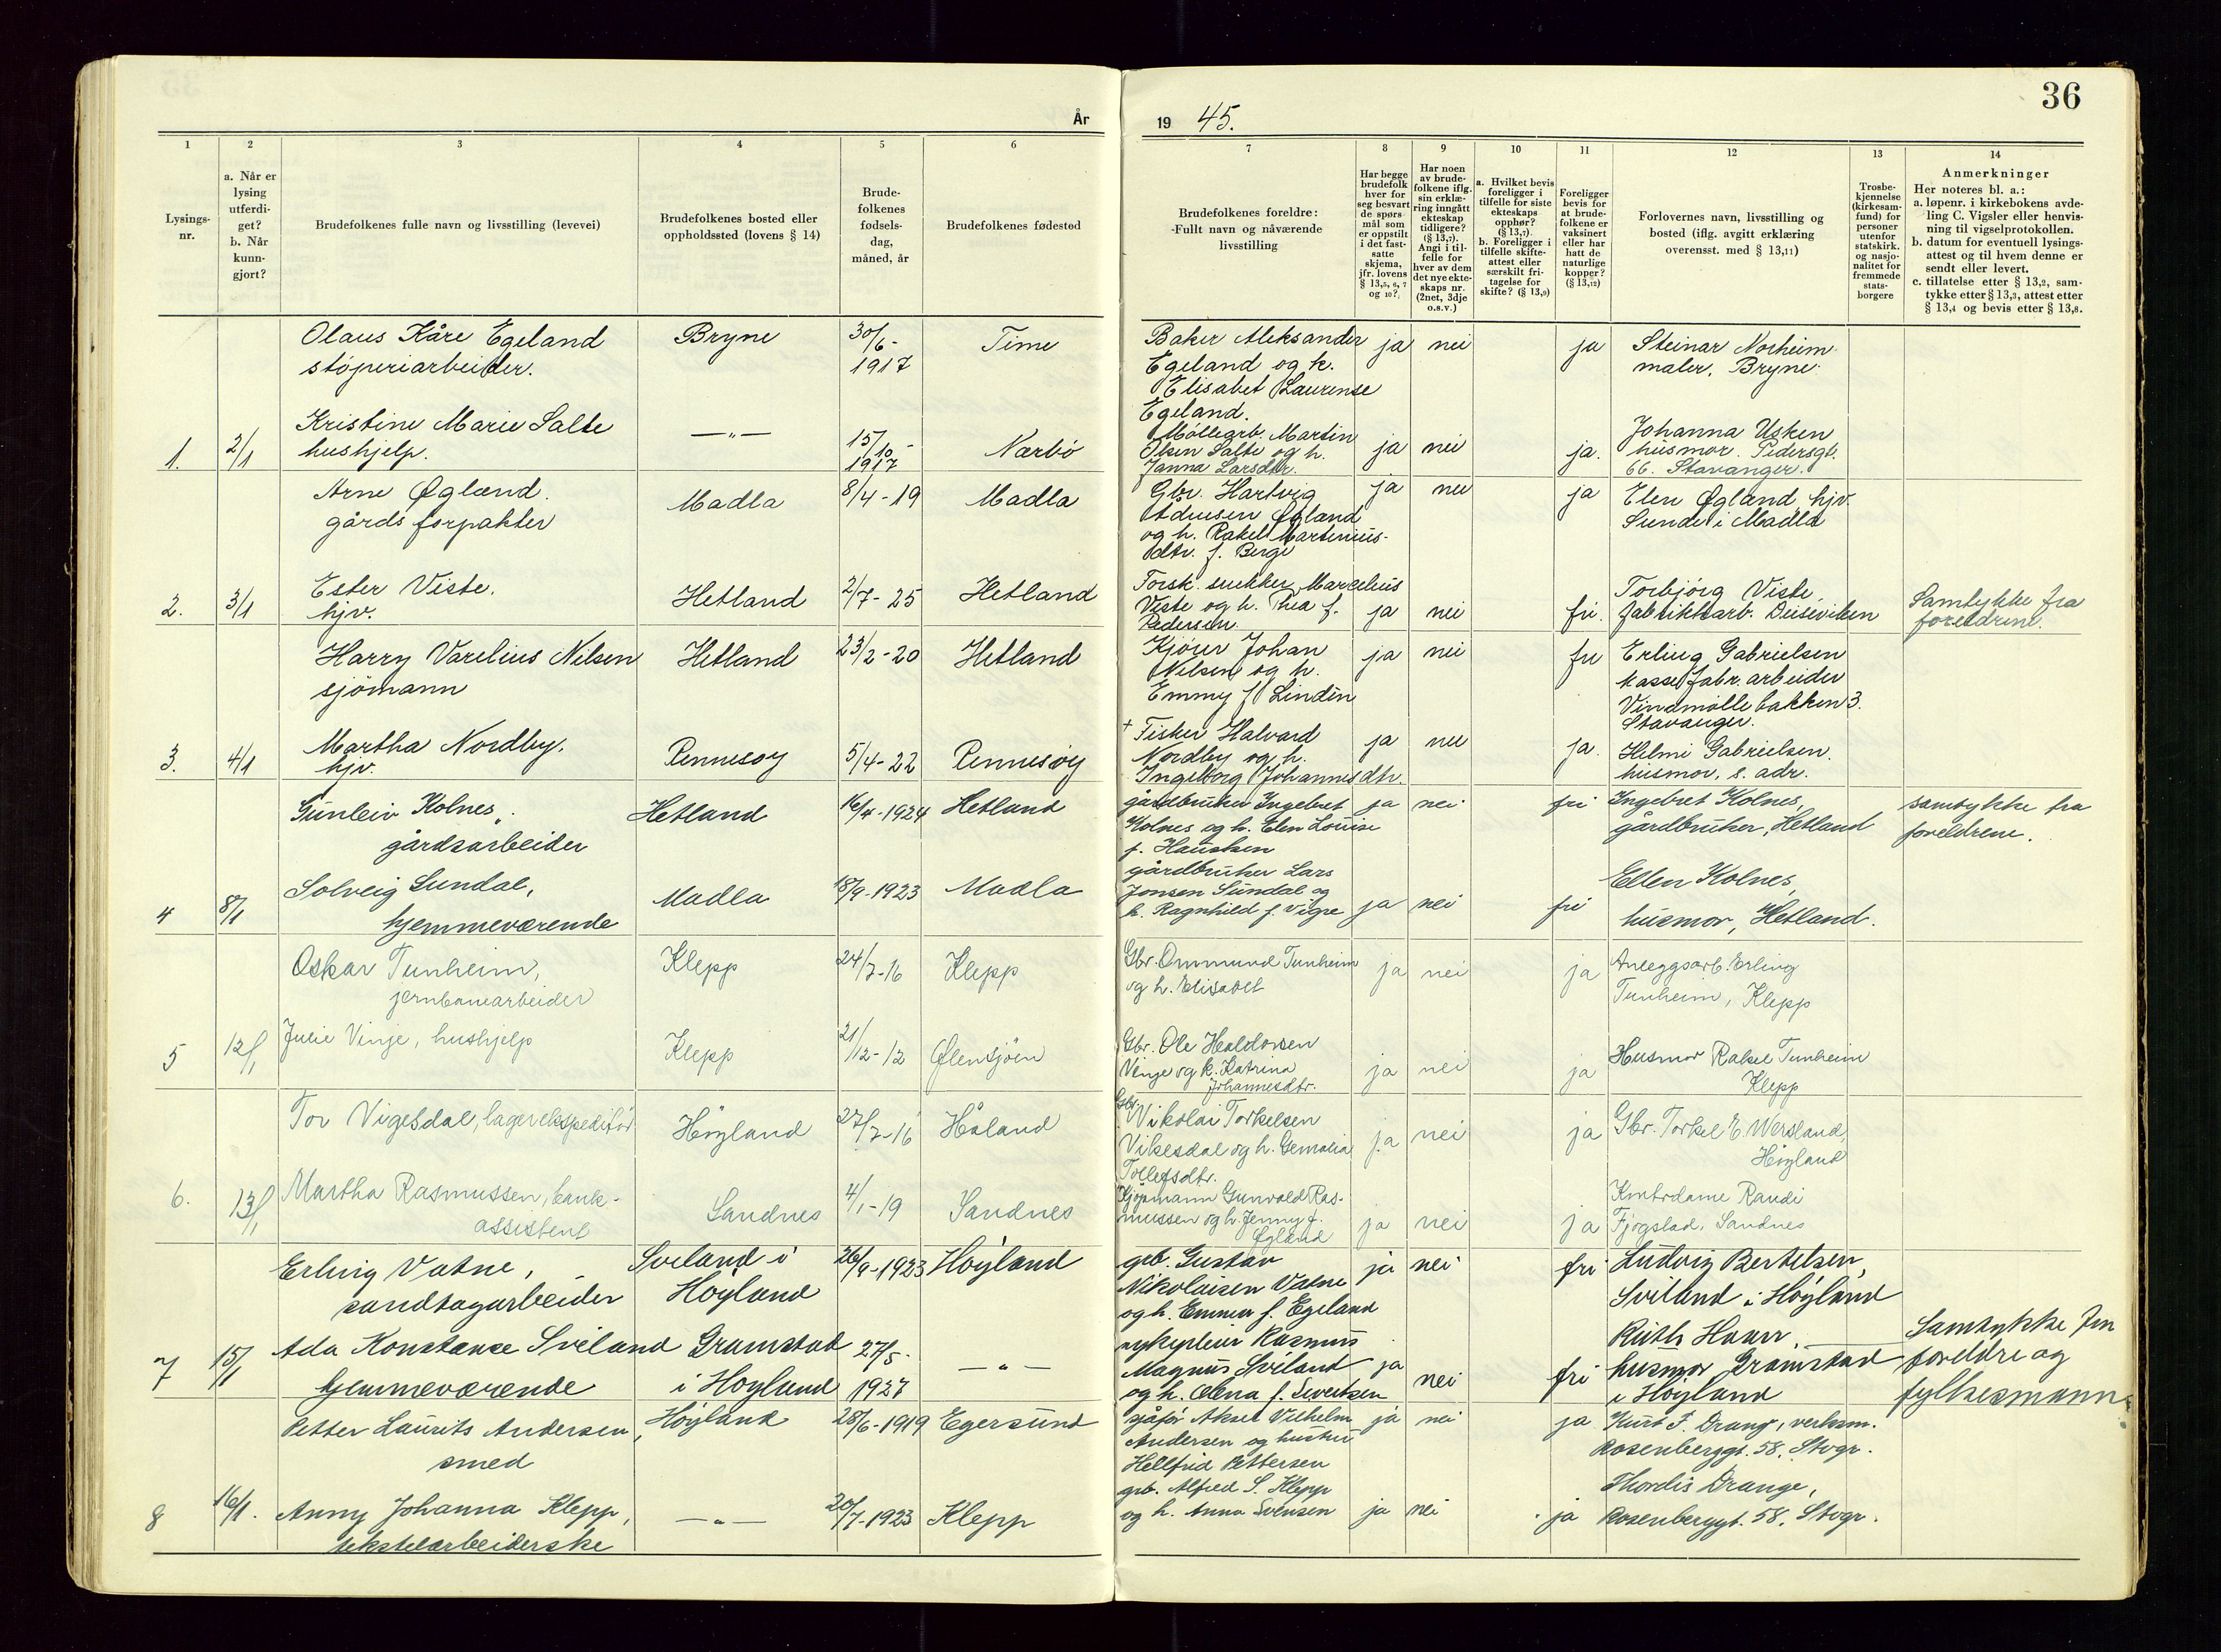 36
År
19 45.
1
2
3
4
5
6
7
8
9
10
11
12
13
14
Lysings-
nr.
a. Når er
lysing
utferdi-
get?
b. Når
kunn-
gjort?
Brudefolkenes fulle navn og livsstilling (levevei)
Brudefolkenes bosted eller
oppholdssted (lovens § 14)
Brude-
folkenes
fødsels-
dag,
måned, år
Brudefolkenes fødested
Brudefolkenes foreldre:
Fullt navn og nåværende
livsstilling
Har begge
brudefolk
hver for
seg besvart
de spørs-
mål som
er oppstilt
i det fast-
satte
skjema,
jfr. lovens
§ 13,5, 6, 7
og 10?
Har noen
av brude-
folkene iflg.
sin erklæ-
ring inngått
ekteskap
tidligere?
(§ 13,7).
Angi i til-
felle for
hver av dem
det nye ekte-
skaps nr.
(2net, 3dje
o.s.v.)
a. Hvilket bevis
foreligger i
tilfelle for siste
ekteskaps
opphør?
(§ 13,7).
b. Foreligger i
tilfelle skifte-
attest eller
særskilt fri-
tagelse for
skifte? (§ 13,9)
Foreligger
bevis for
at brude-
folkene er
vaksinert
eller har
hatt de
naturlige
kopper?
(§ 13,12)
Forlovernes navn, livsstilling og
bosted (iflg. avgitt erklæring
overensst. med § 13,11)
Trosbe-
kjennelse
(kirkesam-
fund) for
personer
utenfor
statskirk.
og nasjo-
nalitet for
fremmede
stats-
borgere
Anmerkninger
Her noteres bl. a.:
a. løpenr. i kirkebokens avde-
ling C. Vigsler eller henvis-
ning til vigselprotokollen.
b. datum for eventuell lysings-
attest og til hvem denne er
sendt eller levert.
c. tillatelse etter § 13,2, sam-
tykke etter § 13,3, attest etter
§ 13,4 og bevis etter § 13,8.
Olaus Kåre Egeland
støperiarbeider.
Bryne
30/6-
1917
Time
Baker Aleksander
Egeland og h.
Elisabet Laurense
Egeland.
ja nei ja
Steinar Norheim
maler. Bryne.
1. 2/1
Kristine Marie Salte
hushjelp.
—"—
15/10-
1917
Nærbø
Møllearb. Martin
Olsen Salte og h.
Janna Larsdtr.
ja nei ja.
Johanna Usken
husmor. Pedersgt.
66. Stavanger.
Arne Øgland.
gårdsforpakter
Madla
8/4-19
Madla
Gbr. Hartvig
Øgland
og h. Rakel Martinius-
dtr. f. Berge
ja nei ja
Elen Øgland, hjv.
Sunde i Madla
2. 3/1
Ester Viste.
hjv.
Hetland
2/7-25
Hetland
Forsk. snekker Marselius
Viste og h. Thea f.
Pedersen.
ja nei fri.
Torbjørg Viste,
fabrikkarb. Dusaviken
Samtykke fra
foreldrene.
Harry Varelius Nilsen
sjømann
Hetland
23/2-20
Hetland
Kjører Johan
Nilsen og h.
Emmy f. Lindèn
ja nei fri
Erling Gabrielsen
kassefabr. arbeider
Vindmøllebakken 3.
Stavanger.
3. 4/1
Martha Nordby,
hjv.
Rennesøy
5/4-22
Rennesøy
+ Fisker Halvard
Nordby og h.
Ingeborg Johannesdtr.
ja nei ja.
Helmi Gabrielsen.
husmor, s. adr.
Gunleiv Kolnes,
gårdsarbeider
Hetland
16/4-1924
Hetland
gårdbruker Ingebret
Kolnes og h. Elen Louise
f. Hausken
ja nei fri
Ingebret Kolnes,
gårdbruker, Hetland
samtykke fra
foreldrene.
4 8/1
Solveig Sundal,
hjemmeværende
Madla
18/9-1923
Madla
gårdbruker Lars
Jonsen Sundal og
h. Ragnhild f. Vigre
ja nei fri
Ellen Kolnes,
husmor, Hetland.
Oskar Tunheim,
jernbanearbeider
Klepp
24/7-16
Klepp
Gbr. Ommund Tunheim
og h. Elisabet
ja nei ja
Anleggsarb. Erling
Tunheim, Klepp
5 12/1
Julie Vinje, hushjelp
Klepp
21/2-12
Ølensjøen
Gbr. Ole Haldorsen
Vinje og h. Katrina
Johannesdtr.
ja nei ja
Husmor Rakel Tunheim
Klepp
Tor Vigesdal, lagerekspeditør
Høyland
27/7-16
Håland
Gbr. Nikolai Torkelsen
Vikesdal og h. Gemalia
Tollefsdtr.
ja nei ja
Gbr. Torkel E. Wersland,
Høyland
6. 13/1
Martha Rasmussen, bank-
assistent
Sandnes
4/1-19
Sandnes
Kjøpmann Gunvald Ras-
mussen og h. Jenny f.
Øgland
ja nei ja
Kontrdame Randi
Fjogstad, Sandnes
Erling Vatne,
sandtagarbeider
Sviland i
Høyland
26/9-1923
Høyland
grb. Gustav
Nikolaisen Vatne
og h. Emma f. Egeland
ja nei fri
Ludvig Bertelsen,
Sviland i Høyland
7 15/1
Ada Konstanse Sviland
hjemmeværende
Gramstad
i Høyland
27/5-
1927
—"—
sykepleier Rasmus
Magnus Sviland
og h. Olena f. Sivertsen
ja nei fri
Ruth Haar,
husmor Gramstad
i Høyland
Samtykke fra
foreldre og
fylkesmann.
Petter Laurits Andersen,
smed
Høyland
28/6-1919
Egersund
sjåfør Aksel Vilhelm
Andersen og hustru
Hellfrid Pettersen
ja nei ja
Kurt F. Drange, verksm.
Rosenberggt. 58. Stvgr.
8 16/1.
Anny Johanna Klepp,
tekstilarbeiderske
—"—
20/7-1923
Klepp
grb. Alfred S. Klepp
og h. Anna Svensen
ja nei ja
Thordis Drange,
Rosenberggt. 58. Stvgr.